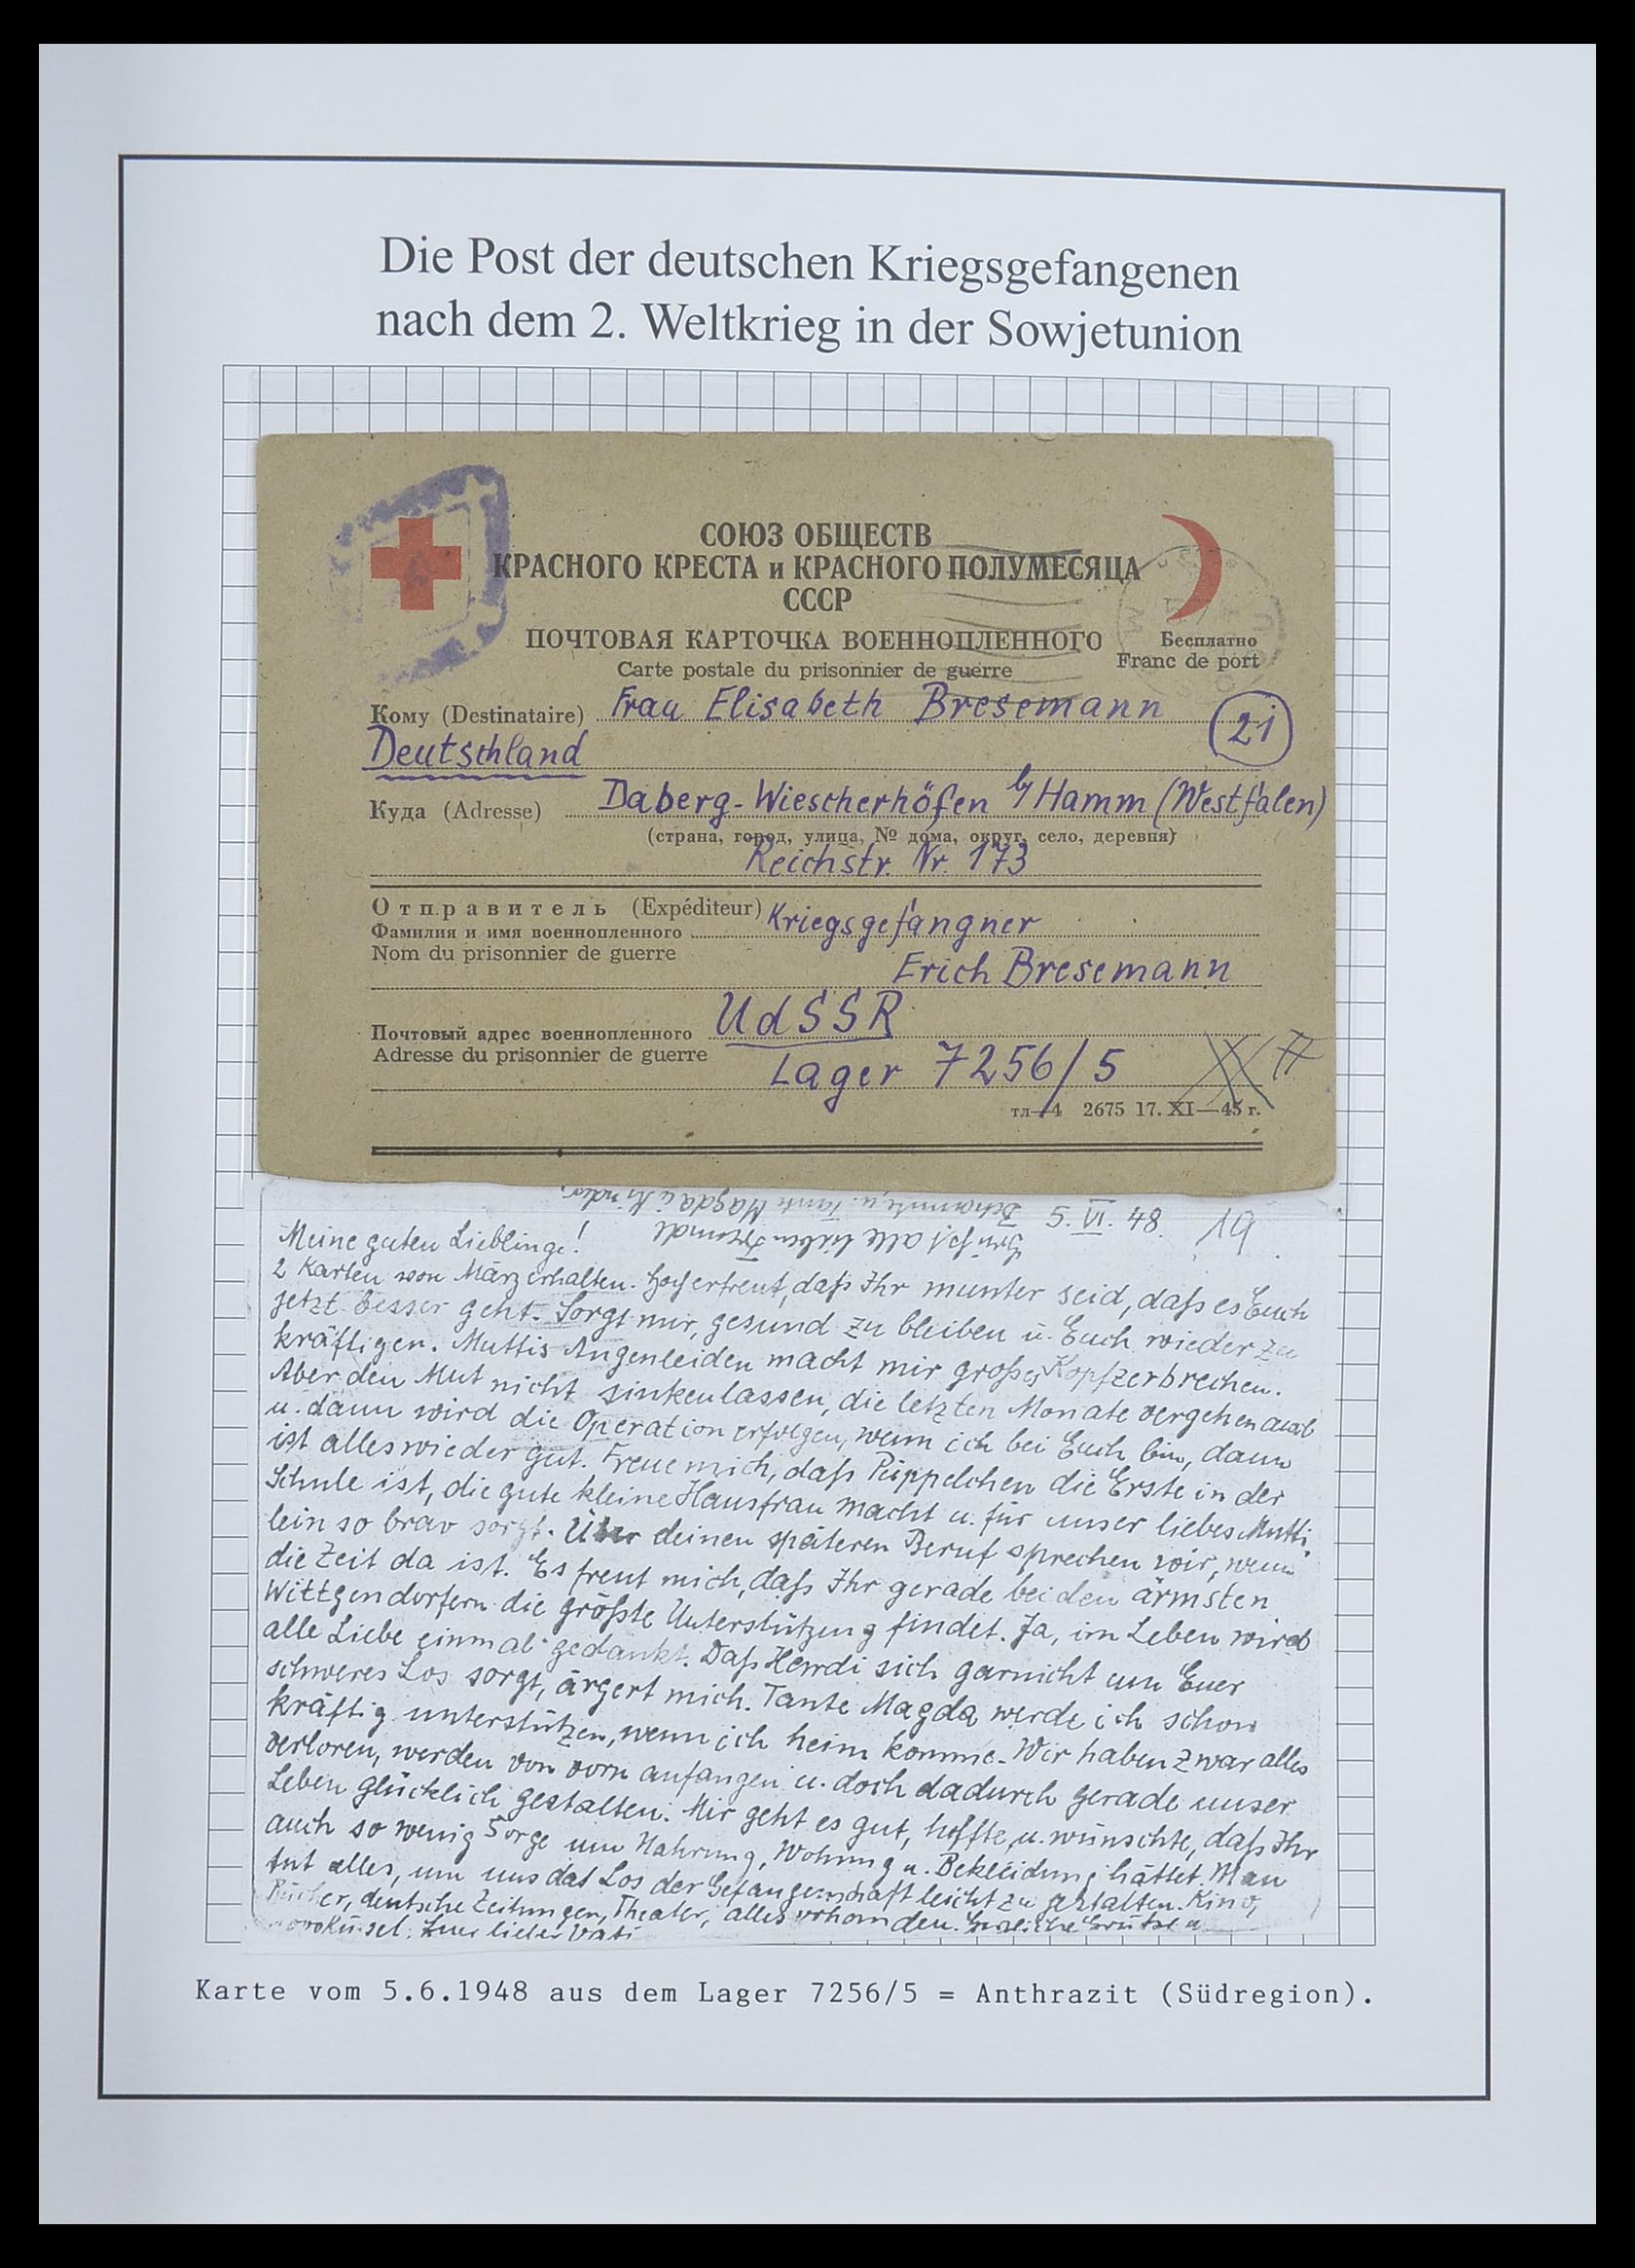 Die Post der deutschen Kriegsgefangenen
nach dem 2. Weltkrieg in der Sowjetunion
СОЮЗ ОБЩЕСТВ
КРАСНОГО КРЕСТА и КРАСНОГО ПОЛУМЕСЯЦА
СССР
ПОЧТОВАЯ КАРТОЧКА ВОЕННОПЛЕННОГО
Бесплатно
Carte postale du prisonnier de guerre
Franc de port
Кому (Destinataire) Frau Elisabeth Bresemann
21
Deutschland
Куда (Adresse) Daberg-Wiescherhöfen b/ Hamm (Westfalen)
(страна, город, улица, № дома, округ, село, деревня)
Reichstr. Nr. 173
Отправитель (Expéditeur) Kriegsgefangner
Фамилия и имя военнопленного
Nom du prisonnier de guerre
Erich Bresemann
UdSSR
Почтовый адрес военнопленного
Adresse du prisonnier de guerre
Lager 7256/5
тл—4 2675 17. XI—45 г.
5. VI. 48. 19
Meine guten Lieblinge!
2 Karten von März erhalten. Hocherfreut, daß Ihr munter seid, daß es Euch
jetzt besser geht. Sorgt nur, gesund zu bleiben u. Euch wieder zu
kräftigen. Muttis Augenleiden macht mir großes Kopfzerbrechen.
Aber den Mut nicht sinken lassen, die letzten Monate vergehen auch
u. dann wird die Operation erfolgen, wenn ich bei Euch bin, dann
ist alles wieder gut. Freue mich, daß Püppelchen die Erste in der
Schule ist, die gute kleine Hausfrau macht u. für unser liebes Mutti-
lein so brav sorgt. Über deinen späteren Beruf sprechen wir, wenn
die Zeit da ist. Es freut mich, daß Ihr gerade bei den ärmsten
Wittgendorfern die größte Unterstützung findet. Ja, im Leben wird
alle Liebe einmal gedankt. Daß sich garnicht um Euer
schweres Los sorgt, ärgert mich. Tante Magda werde ich schon
kräftig unterstützen, wenn ich heim komme. Wir haben zwar alles
verloren, werden von vorn anfangen u. doch dadurch gerade unser
Leben glücklich gestalten. Mir geht es gut, hoffte u. wünschte, daß Ihr
auch so wenig Sorge um Nahrung, Wohnung u. Bekleidung hättet. Man
tut alles, um uns das Los der Gefangenschaft leicht zu gestalten. Kino,
Bücher, deutsche Zeitungen, Theater, alles vorhanden. Herzliche Grüße u.
Euer lieber Vati
Grüßt alle lieben
u. Tante Magda u. Kinder
Karte vom 5.6.1948 aus dem Lager 7256/5 = Anthrazit (Südregion).